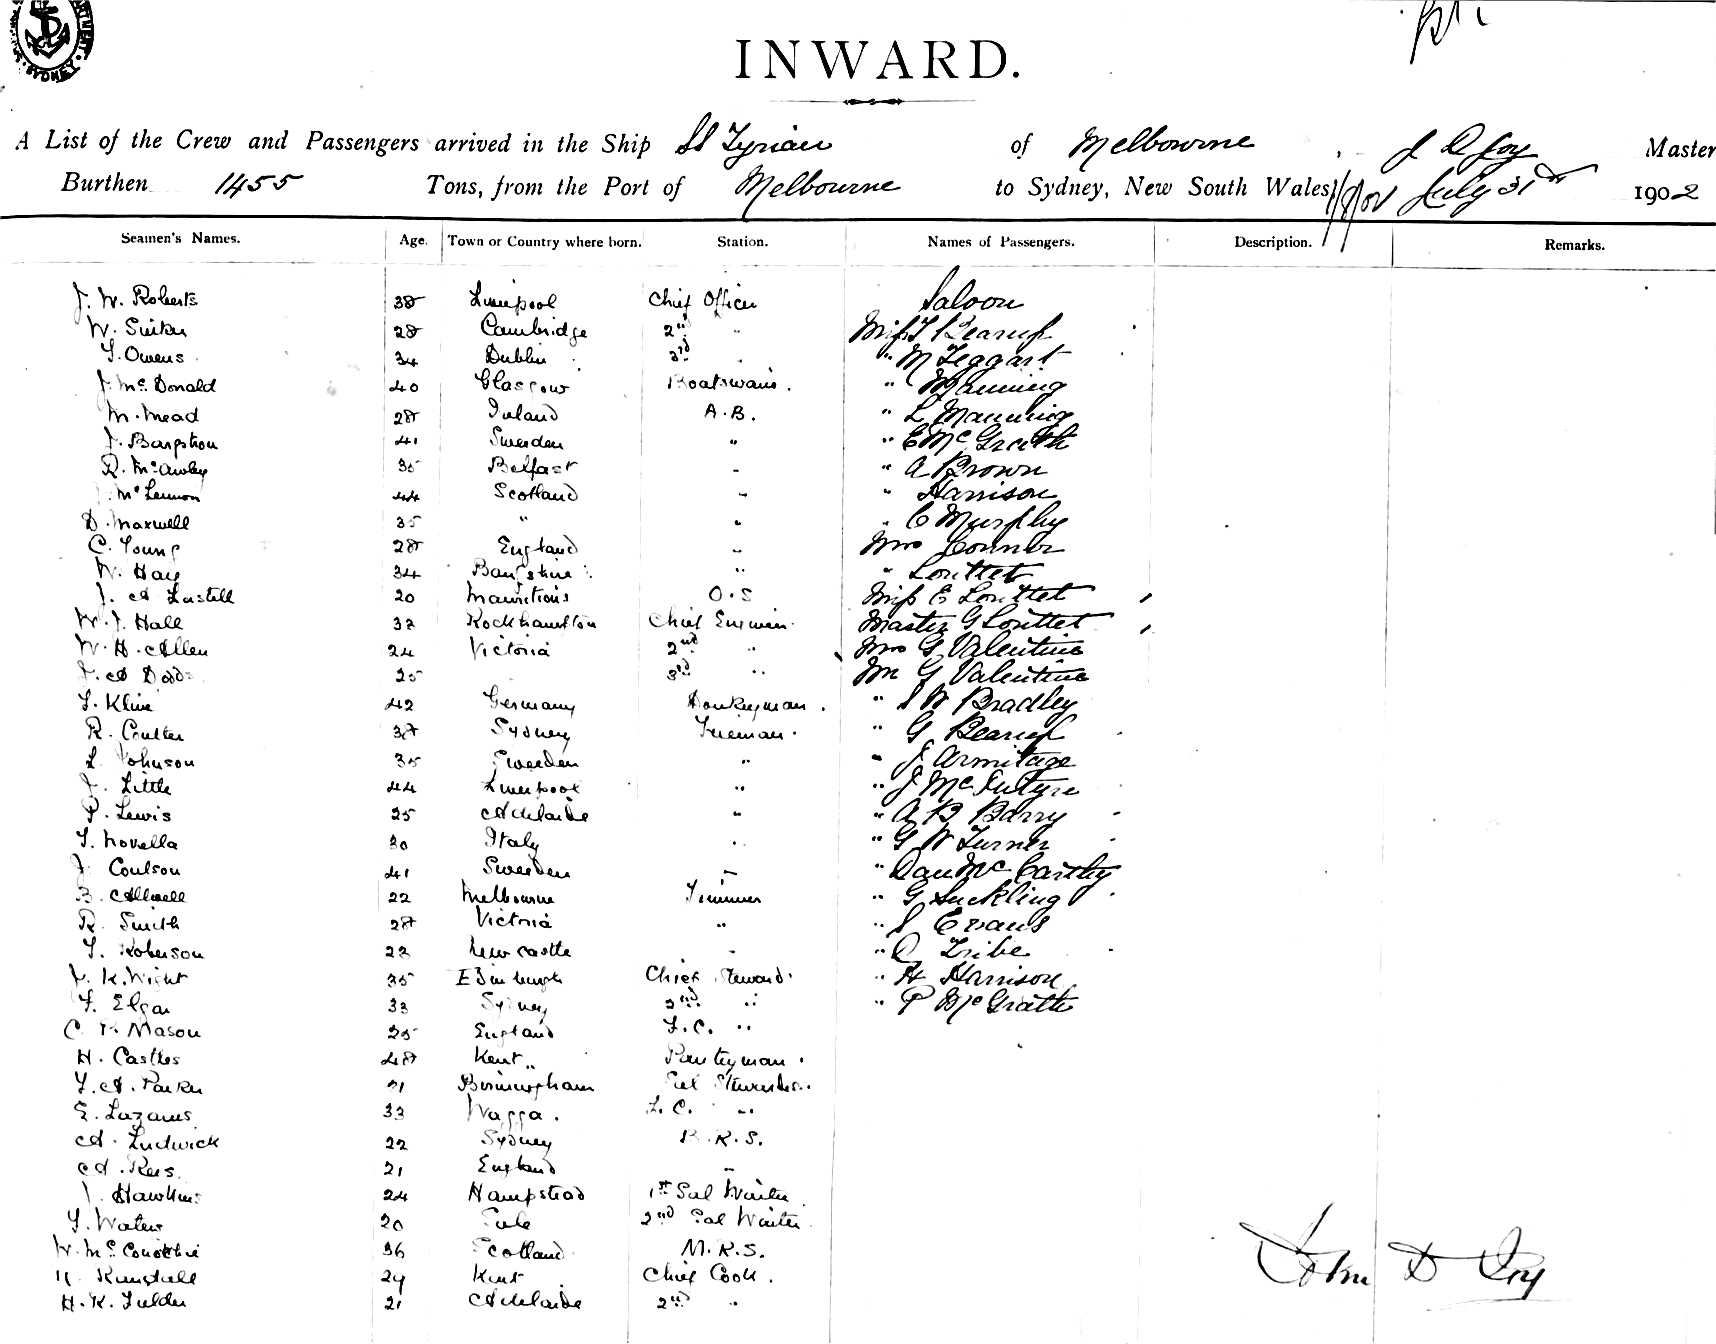 SYDNEY
INWARD.
A List of the Crew and Passengers arrived in the Ship SS Tyrian of Melbourne, J D Joy Master
Burthen 1455 Tons, from the Port of Melbourne to Sydney, New South Wales, July 31st 1902
Seamen's Names. Age. Town or Country where born. Station. Names of Passengers. Description. Remarks.
J. W. Roberts 38 Liverpool Chief Officer Saloon
W. 28 Cambridge 2nd " Miss Bearup
T. Owens 34 Dublin 3rd " " M Teggart
J. McDonald 40 Glasgow Boatswain. " Manning
M. Mead 28 Ireland A.B. " L Manning
J. 41 Sweden " " E McGrath
R. McAwley 35 Belfast " " A Brown
McLennon 44 Scotland " " Harrison
D. Maxwell 35 " " " C Murphy
C. Young 28 England " Mrs Connor
W. Hay 34 " " Louttet
J. A 20 Mauritius O.S Miss E Louttet
W. J. Hall 32 Rockhampton Chief Engineer Master G Louttet
W. H. Allen 24 Victoria 2nd " Mrs G Valentine
J. A 25 3rd " Mr G Valentine
42 Germany Donkeyman. " S W Bradley
R. Coulter 38 Sydney Fireman. " G Bearup
L Johnson 35 Sweeden " " J Armitage
J. Little 44 Liverpool " " J McIntyre
P. Lewis 25 Adelaide " " A B Barry
T. Novella 30 Italy " " G W Turner
J Coulson 41 Sweeden " " Dan McCarthy
B. 22 Melbourne Trimmer " G Suckling
R. Smith 28 Victoria " " S Evans
T. Roberson 22 Newcastle " " Tribe
J. K. Wight 35 Edinburgh Chief Steward. " H Harrison
F. Elgar 33 Sydney 2nd " " P McGrath
C Mason 25 England F.C. "
H. Castles 48 Kent " Pantryman.
T. A. Parker 21 Birmingham
E. Lazarus 33 Wagga. F.C. "
A. Ludwick 22 Sydney B.R.S.
A. Rees 21 England "
J. Hawkins 24 Hampstead 1st Sal Waiter
20 2nd Sal Waiter
W. McConochie 36 Scotland M.R.S.
Kent Chief Cook.
H. K. Fielder 21 Adelaide 2nd "
John D Joy